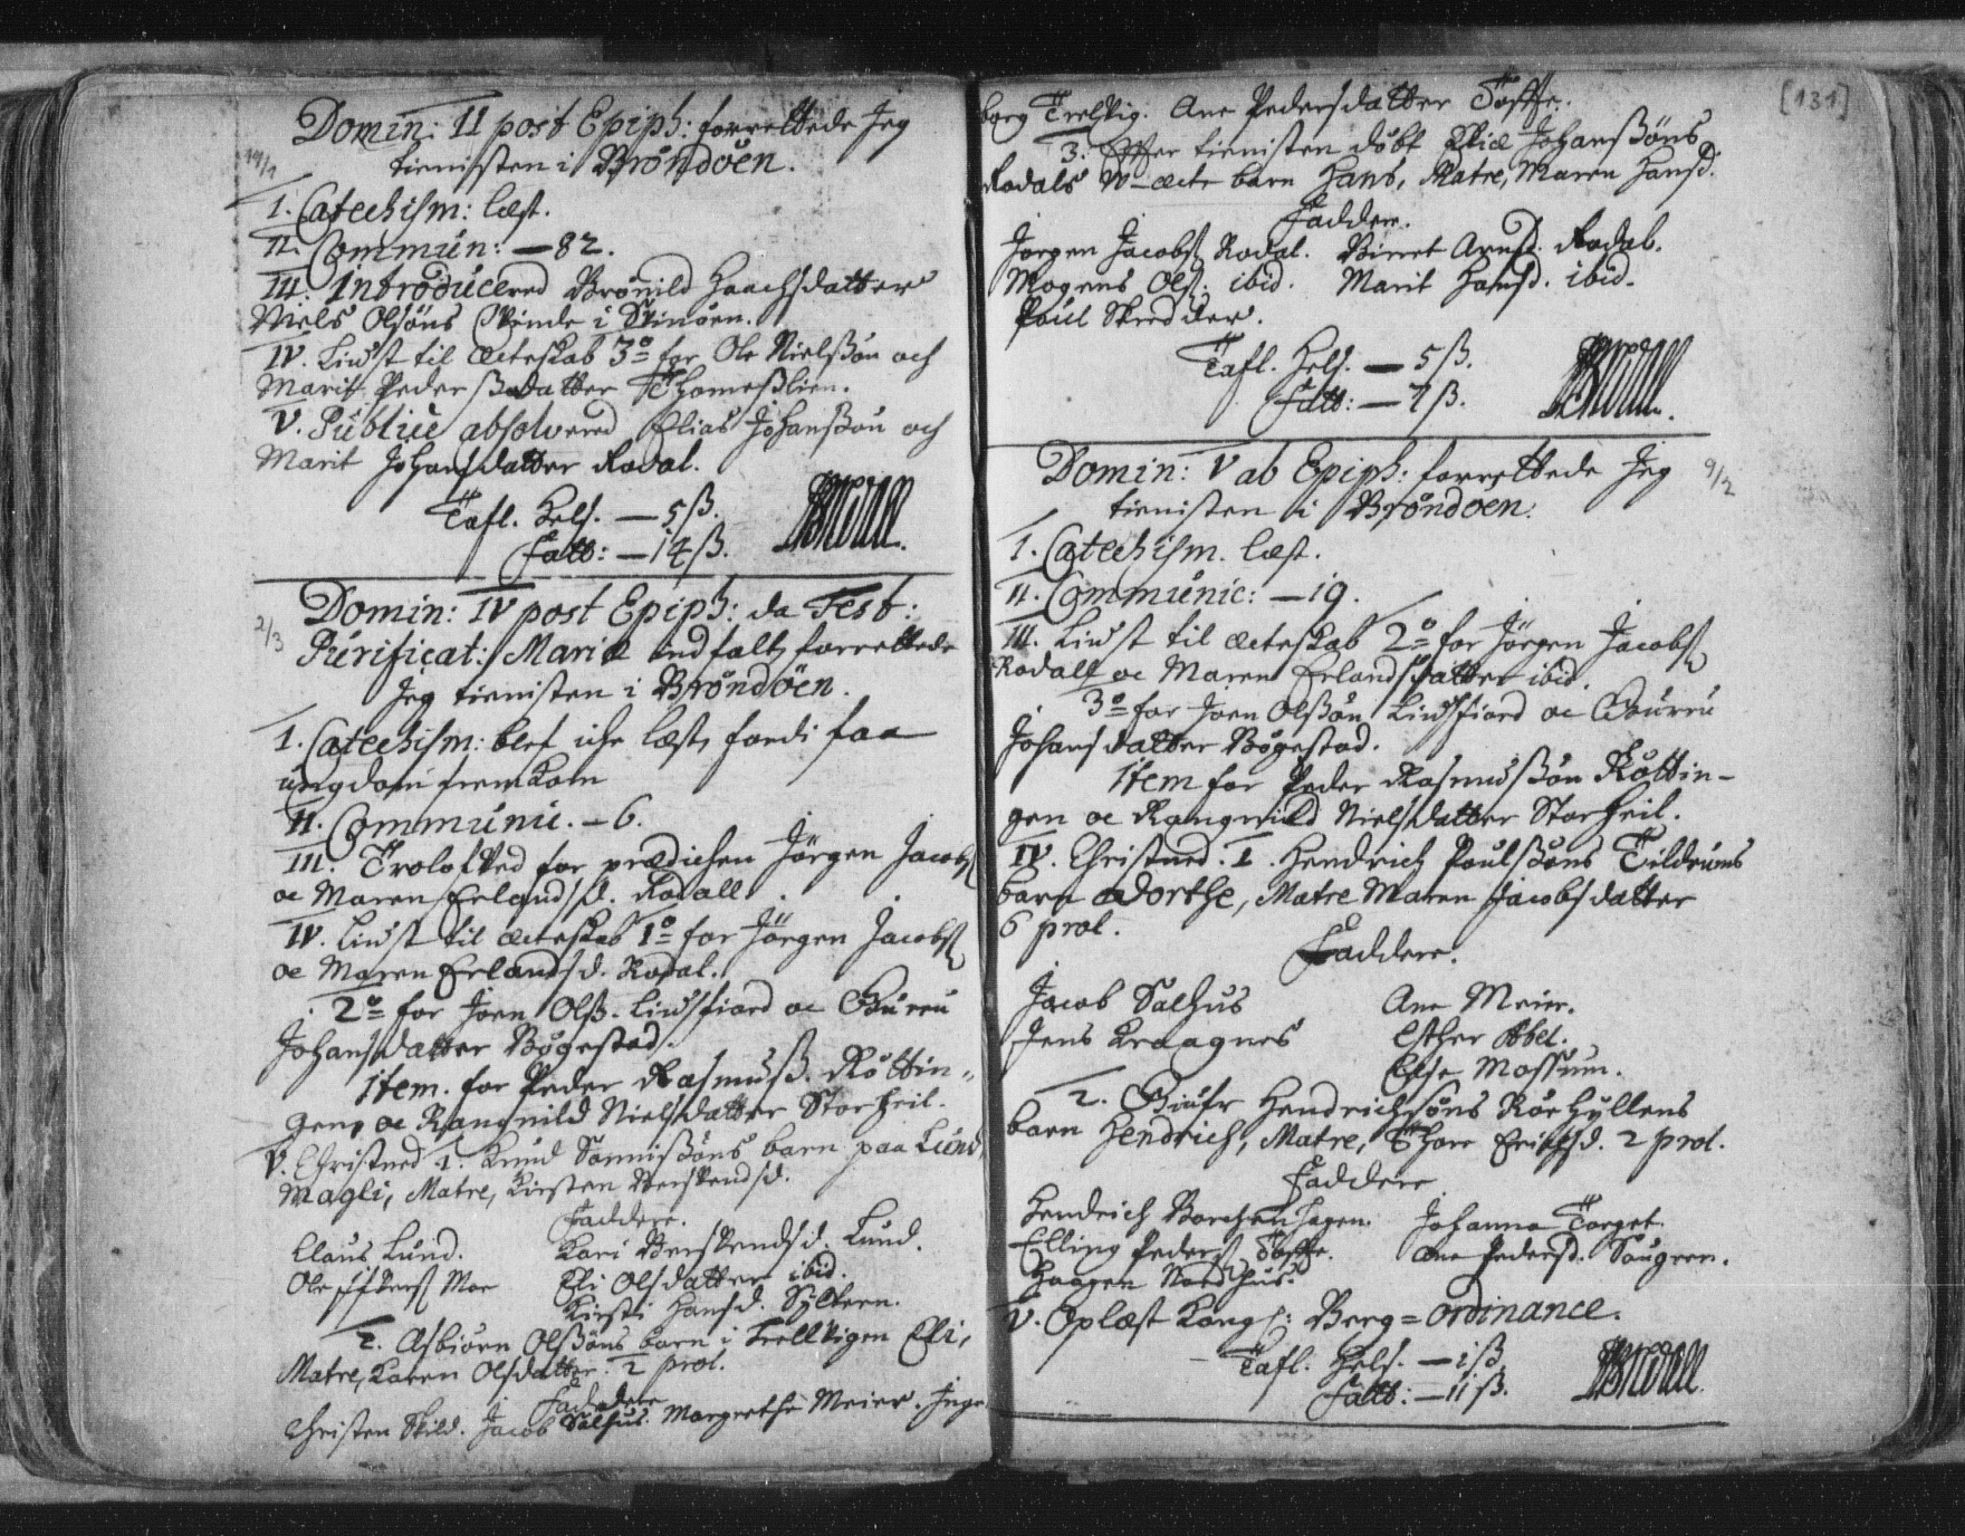 Domin: II post Epiph: forrettede Jeg
tienisten i Brøndøen.
I. Catechism: læst.
II. Commun: — 82.
III. Introducered Brønild Haachsdatter
Niels Olsøns Qvinde i
IV. Liust til Ecteskab 3º for Ole Nielssøn och
Marit Pederssdatter Thomesslien.
V. Publice absolvered Elias Johanssøn och
Marit Johansdatter Rodal.
Tafl. Hels. — 5 ß.
Fatt: — 14 ß.
2/3
Domin: IV post Epiph: da Fest:
Purificat: Mariæ indfalt, forrettede
Jeg tienisten i Brøndøen.
I. Catechism: blef iche læst, fordi faa
ungdom fremkom
II. Communic. — 6.
III. Trolofved for prædichen Jørgen Jacobs
oc Maren Erlandsd. Rodall.
IV. Liust til Ecteskab 1º for Jørgen Jacobs
oc Maren Erlandsd. Rodal.
2º for Joen Olss. Liusfiord oc Guru
Johansdatter Bøgestad.
Item. for Peder Rasmuss. Røttin-
gen, oc Rangnild Nielsdatter Storheil.
V. Christned 1. Knud Sonnissøns barn paa Lund
Magli, Matre, Kirsten
Faddere.
Claus Lund. Kari Lund.
Ole Moe Eli Olsdatter ibid.
Kirsti Hansd. Sylteren.
2. Asbiørn Olssøns barn i Trellvigen Eli,
Matre, Karen Olsdatter. 2 prol.
Faddere
Christen Skild. Jacob Salhus. Margrethe Meier. Inge
[131]
borg Trelvig. Ane Pedersdatter Tofte.
3. Effter tienisten døbt Eliæ Johanssøns
Rodals U-ecte barn Hans, Matre, Maren Hansd.
Faddere.
Jørgen Jacobs Rodal. Birret Arnsd. Rodal.
Mogens Ols. ibid. Marit Hansd. ibid.
Poul Skredder.
Tafl. Hels. — 5 ß.
Fatt: — 7 ß.
Domin: V ab Epiph: forrettede Jeg
9/2
tienisten i Brøndøen.
I. Catechism. læst.
II. Communic: — 19.
III. Liust til Ecteskab 2º for Jørgen Jacobs
Rodall oc Maren Erlandsdatter ibid.
3º for Joen Olssøn Liusfiord oc Guru
Johansdatter Bøgestad.
Item for Peder Rasmussøn Røttin-
gen oc Rangnild Nielsdatter Storheil.
IV. Christned. 1. Hendrich Poulssøns Tildrums
barn Dorthe, Matre Maren Jacobsdatter
6 prol.
Faddere.
Jacob Salhus Ane Meier.
Jens Kraagnes Esther Abel.
Else Mossum.
2. Giufr Hendrichsøns Rørhyllens
barn Hendrich, Matre, Thore Erichsd. 2 prol.
Faddere
Hendrich Borchenhagen. Johanna Torget.
Elling Peders Tofte. Ane Pedersd. Saugreen.
Haagen Nordhus.
V. Oplæst Kongl: Berg=ordinance.
Tafl. Hels. — 1 ß.
Fatt: — 11 ß.